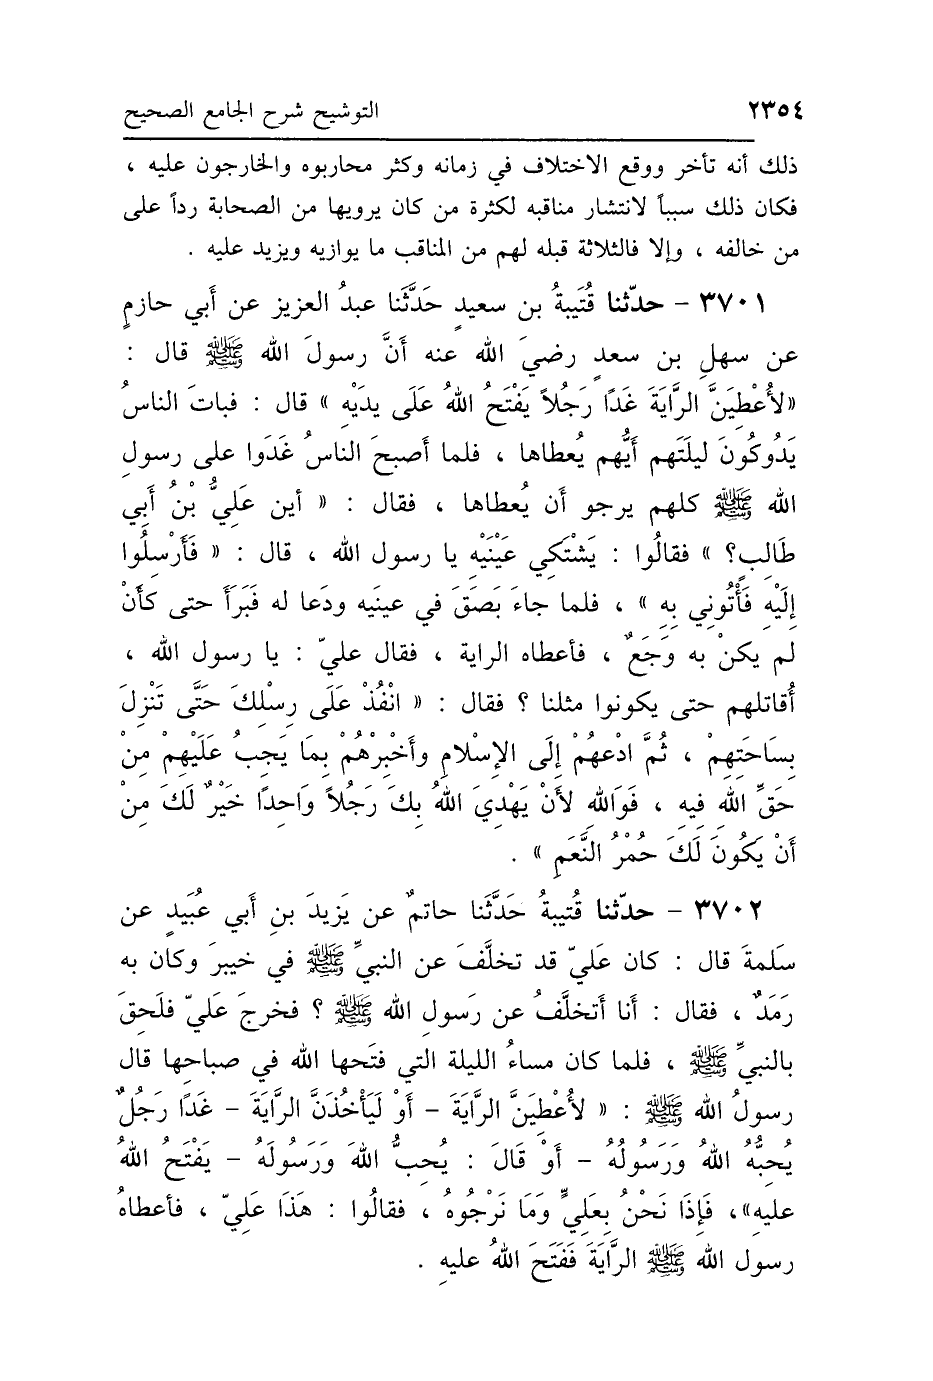 ٢٣٥٤ التوشيح شرح الجامع الصحيح
ذلك أنه تأخر ووقع الاختلاف في زمانه وكثر محاربوه والخارجون عليه ،
فكان ذلك سبباً لانتشار مناقبه لكثرة من كان يرويها من الصحابة رداً على
من خالفه ، وإلا فالثلاثة قبله لهم من المناقب ما يوازيه ويزيد عليه .
٣٧٠١ – حدّثنا قُتَيبةُ بن سعيدٍ حَدَّثَنا عبدُ العزيز عن أبي حازمٍ
عن سهلِ بن سعدٍ رضيَ الله عنه أنَّ رسولَ الله ﷺ قال :
«لأُعْطِيَنَّ الرَّايَةَ غَدًا رَجُلاً يَفْتَحُ اللهُ عَلَى يدَيْهِ » قال : فباتَ الناسُ
يَدُوكُونَ ليلَتَهم أيُّهم يُعطاها ، فلما أصبحَ الناسُ غَدَوا على رسولِ
الله ﷺ كلهم يرجو أن يُعطاها ، فقال : « أين عَلِيُّ بْنُ أَبِي
طَالِبٍ؟ » فقالُوا : يَشْتَكِي عَيْنَيْهِ يا رسول الله ، قال : « فَأَرْسِلُوا
إِلَيْهِ فَأْتُونِي بِهِ » ، فلما جاءَ بَصَقَ في عينَيه ودَعا له فَبَرَأَ حتى كأَنْ
لم يكنْ به وَجَعٌ ، فأعطاه الراية ، فقال عليّ : يا رسول الله ،
أُقاتلهم حتى يكونوا مثلنا ؟ فقال : « انْفُذْ عَلَى رِسْلِكَ حَتَّى تَنْزِلَ
بِسَاحَتِهِمْ ، ثُمَّ ادْعهُمْ إِلَى الإسْلامِ وأَخْبِرْهُمْ بِمَا يَجِبُ عَلَيْهِمْ مِنْ
حَقِّ اللهِ فِيهِ ، فَوَاللهِ لأَنْ يَهْدِيَ اللهُ بِكَ رَجُلاً وَاحِدًا خَيْرٌ لَكَ مِنْ
أَنْ يَكُونَ لَكَ حُمْرُ النَّعَمِ » .
٣٧٠٢ – حدّثنا قُتيبةُ حَدَّثَنا حاتمٌ عن يَزِيدَ بنِ أَبي عُبَيدٍ عن
سلَمةَ قال : كان عَليّ قد تخلَّفَ عن النبيِّ ﷺ في خيبرَ وكان به
رَمَدٌ ، فقال : أنا أَتخلَّفُ عن رَسولِ الله ﷺ ؟ فخرجَ عَليّ فلَحِقَ
بالنبيِّ ﷺ ، فلما كان مساءُ الليلة التي فتَحها الله في صباحِها قال
رسولُ الله ﷺ : « لأُعْطِيَنَّ الرَّايَةَ – أَوْ لَيَأْخُذَنَّ الرَّايَةَ – غَدًا رَجُلٌ
يُحِبُّهُ اللهُ وَرَسُولُهُ – أَوْ قَالَ : يُحِبُّ اللهَ وَرَسُولَهُ – يَفْتَحُ اللهُ
عليهِ»، فَإِذَا نَحْنُ بِعَلِيٍّ وَمَا نَرْجُوهُ ، فقالُوا : هَذَا عَلِيّ ، فأعطاهُ
رسول الله ﷺ الرَّايَةَ فَفَتَحَ اللهُ عليهِ .